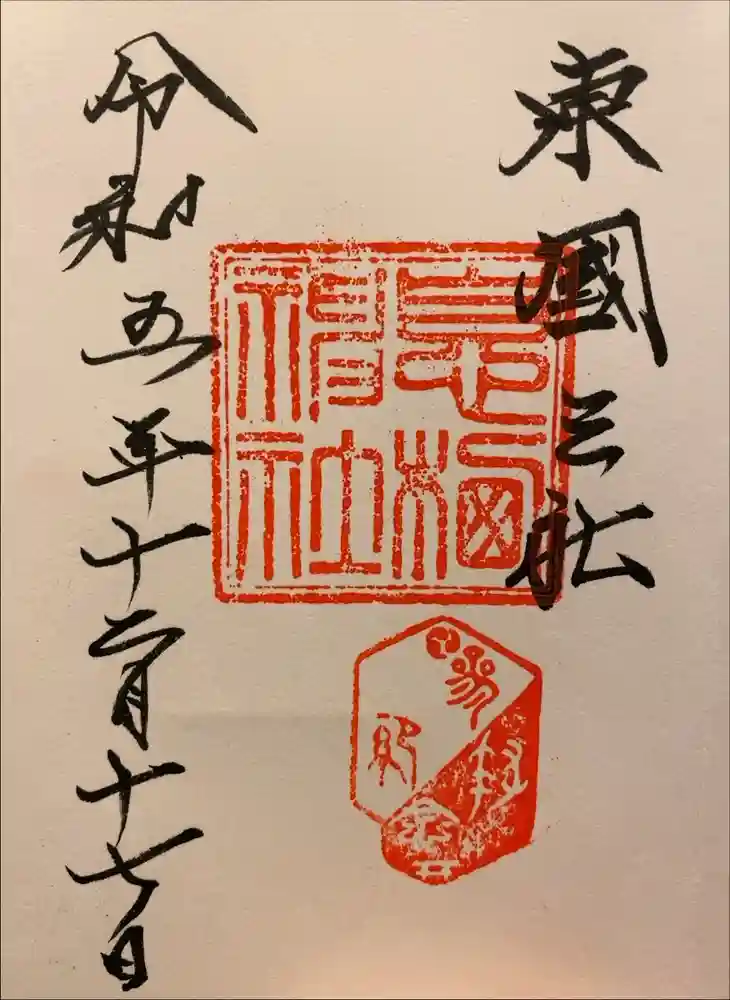 東國三社
息栖
神社
令和五年十二月十七日